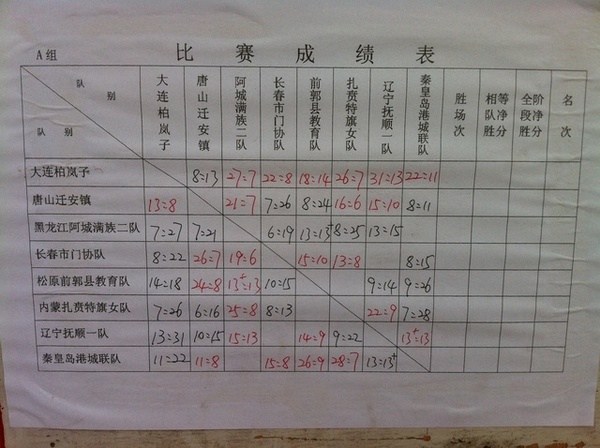 A组 比赛成绩表
队别 大连柏岚子 唐山迁安镇 阿城满族二队 长春市门协队 前郭县教育队 扎赉特旗女队 辽宁抚顺一队 秦皇岛港城联队 胜场次 相等队净胜分 全阶段净胜分 名次
队别
大连柏岚子 8=13 27=7 22=8 18=14 26=7 31=13 22=11
唐山迁安镇 13=8 21=7 7=26 8=24 16=6 15=10 8=11
黑龙江阿城满族二队 7=27 7=21 6=19 13=13⁺ 8=25 13=15
长春市门协队 8=22 26=7 19=6 15=10 13=8 8=15
松原前郭县教育队 14=18 24=8 13⁺=13 10=15 9=14 9=26
内蒙扎赉特旗女队 7=26 6=16 25=8 8=13 22=9 7=28
辽宁抚顺一队 13=31 10=15 15=13 14=9 9=22 13⁺=13
秦皇岛港城联队 11=22 11=8 15=8 26=9 28=7 13=13⁺